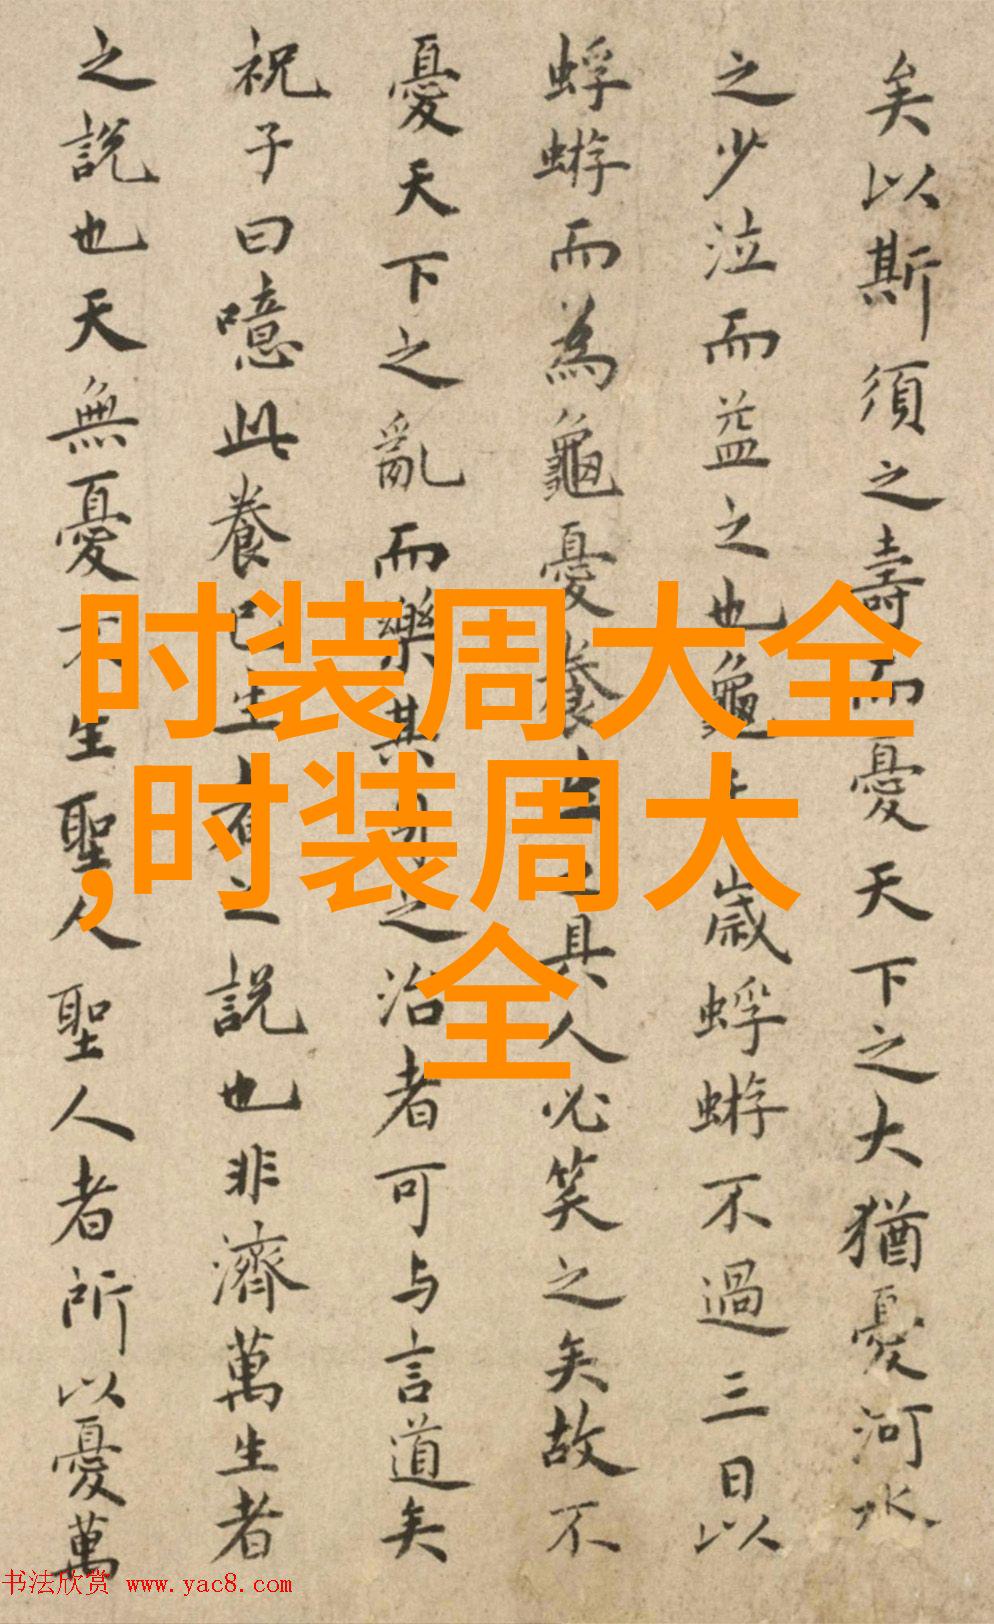 矣以斯須之壽而憂天下之大猶憂河水
之少泣而益之也龜歲蜉蝣不過三日以
蜉蝣而為龜憂養生之具人必笑之矣故不
憂天下之亂而樂其身之治者可与言道矣
祝子曰噫此養已生之說也非濟萬生者
之說也天無憂不生聖人聖人者所以憂萬
时装周大全
,时装周大
全
书法欣赏 www.yac8.com